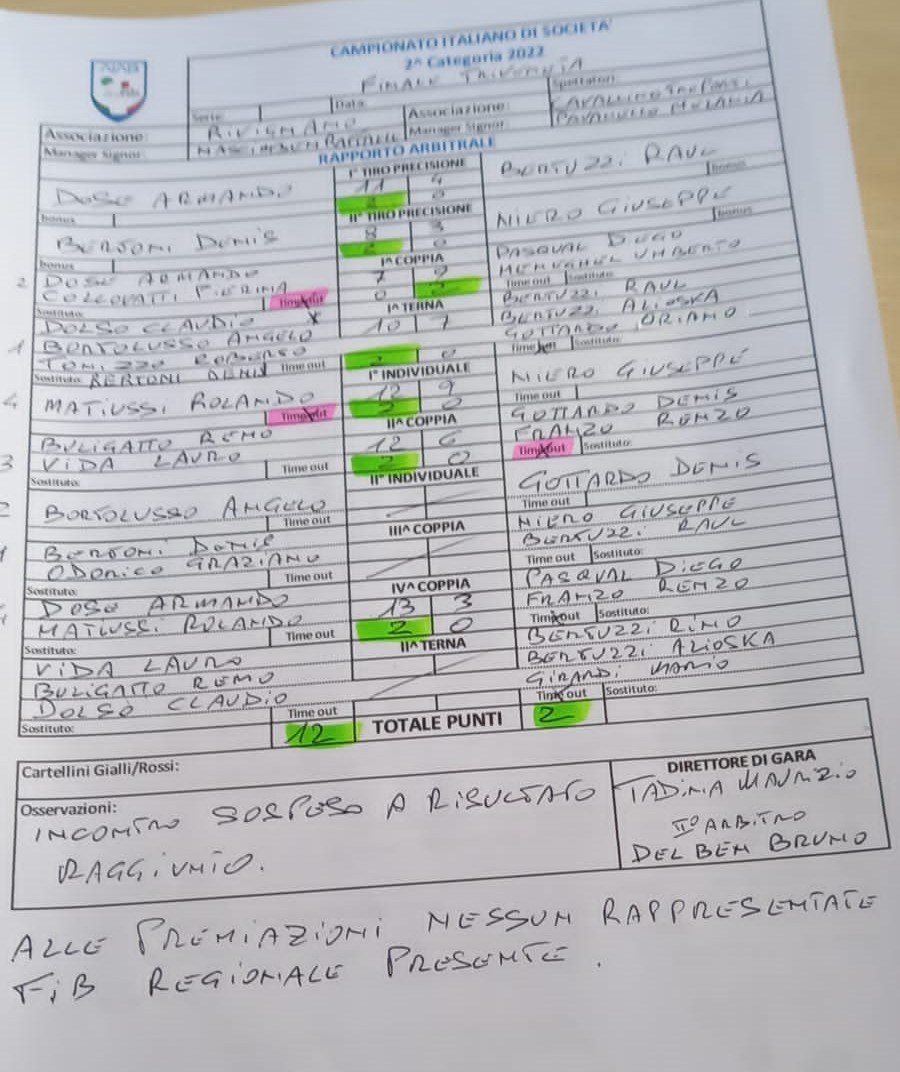 CAMPIONATO ITALIANO DI SOCIETA'
2^ Categoria 2022
FINALE TRIVENETA
Serie: Data: Spettatori:
Associazione: RIVIGNANO Associazione:
Manager Signor: Manager Signor:
RAPPORTO ARBITRALE
I° TIRO PRECISIONE
DOSE ARMANDO 11 4 BERTUZZI RAUL
bonus 2 0 bonus
II° TIRO PRECISIONE
BERTONI DENIS 8 3 NIERO GIUSEPPE
bonus 2 0 bonus
I^ COPPIA
2 DOSE ARMANDO 7 9 PASQUAL DIEGO
PIERINA 0 2 MENEGHEL UMBERTO
Sostituto: Time out Time out Sostituto:
I^ TERNA
DOLSO CLAUDIO 10 7 BERTUZZI RAUL
1 BORTOLUSSO ANGELO BERTUZZI ALIOSKA
TONIZZO ROBERTO 2 0 GOTTARDO ORIANO
Sostituto: BERTONI DENIS Time out Time out Sostituto:
I° INDIVIDUALE
4 MATIUSSI ROLANDO 13 9 NIERO GIUSEPPE
Time out 2 0 Time out
II^ COPPIA
BULIGATTO REMO 12 6 GOTTARDO DENIS
3 VIDA LAURO 2 0 FRANZO RENZO
Sostituto: Time out Time out Sostituto:
II° INDIVIDUALE
2 BORTOLUSSO ANGELO GOTTARDO DENIS
Time out Time out
III^ COPPIA
1 BERTONI DENIS NIERO GIUSEPPE
ODORICO GRAZIANO BERTUZZI RAUL
Sostituto: Time out Time out Sostituto:
IV^ COPPIA
DOSE ARMANDO 13 3 PASQUAL DIEGO
4 MATIUSSI ROLANDO 2 0 FRANZO RENZO
Sostituto: Time out Time out Sostituto:
II^ TERNA
VIDA LAURO BERTUZZI RINO
BULIGATTO REMO BERTUZZI ALIOSKA
DOLSO CLAUDIO GIRARDI MARIO
Sostituto: Time out Time out Sostituto:
12 TOTALE PUNTI 2
Cartellini Gialli/Rossi:
DIRETTORE DI GARA
Osservazioni:
TADINA MAURIZIO
INCONTRO SOSPESO A RISULTATO
RAGGIUNTO.
II° ARBITRO
DEL BEN BRUNO
ALLE PREMIAZIONI NESSUN RAPPRESENTATE
FIB REGIONALE PRESENTE.